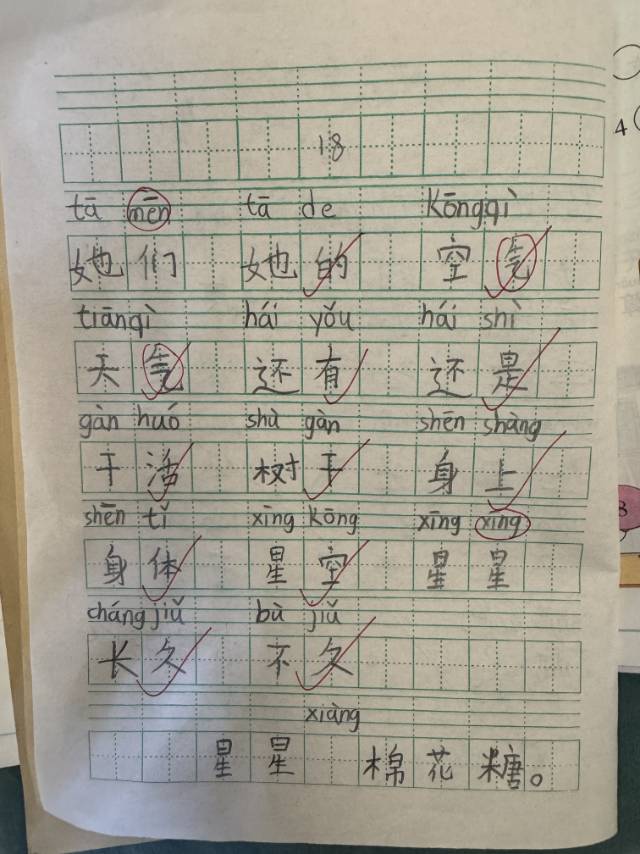 18
4
tā mēn tā de kōngqì
她们 她的 空气
tiānqì hái yǒu hái shì
天气 还有 还是
gàn huó shù gàn shēn shàng
干活 树干 身上
shēn tǐ xīng kōng xīng xīng
身体 星空 星星
cháng jiǔ bù jiǔ
长久 不久
xiàng
星星 棉花糖。